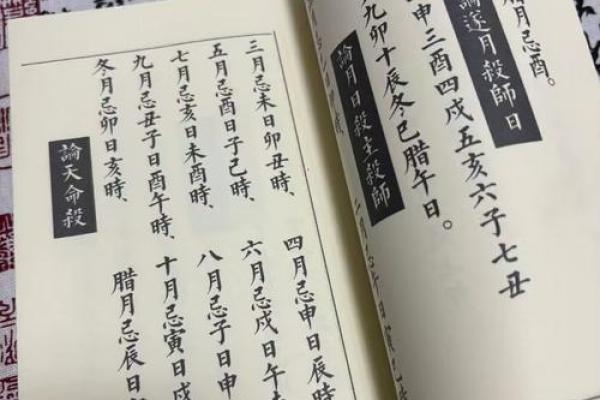 腊月忌酉。
論遂月殺師日
申三酉四戌五亥六子七丑
九卯十辰冬巳腊午日。
論月日殺主殺師
三月忌未日卯丑時、
四月忌申日辰時
五月忌酉日子巳時、
六月忌戌日午
七月忌亥日未酉時、
八月忌子日申
九月忌丑子日酉午時、
十月忌寅日戌
冬月忌卯日亥時、
腊月忌辰日
論天命殺